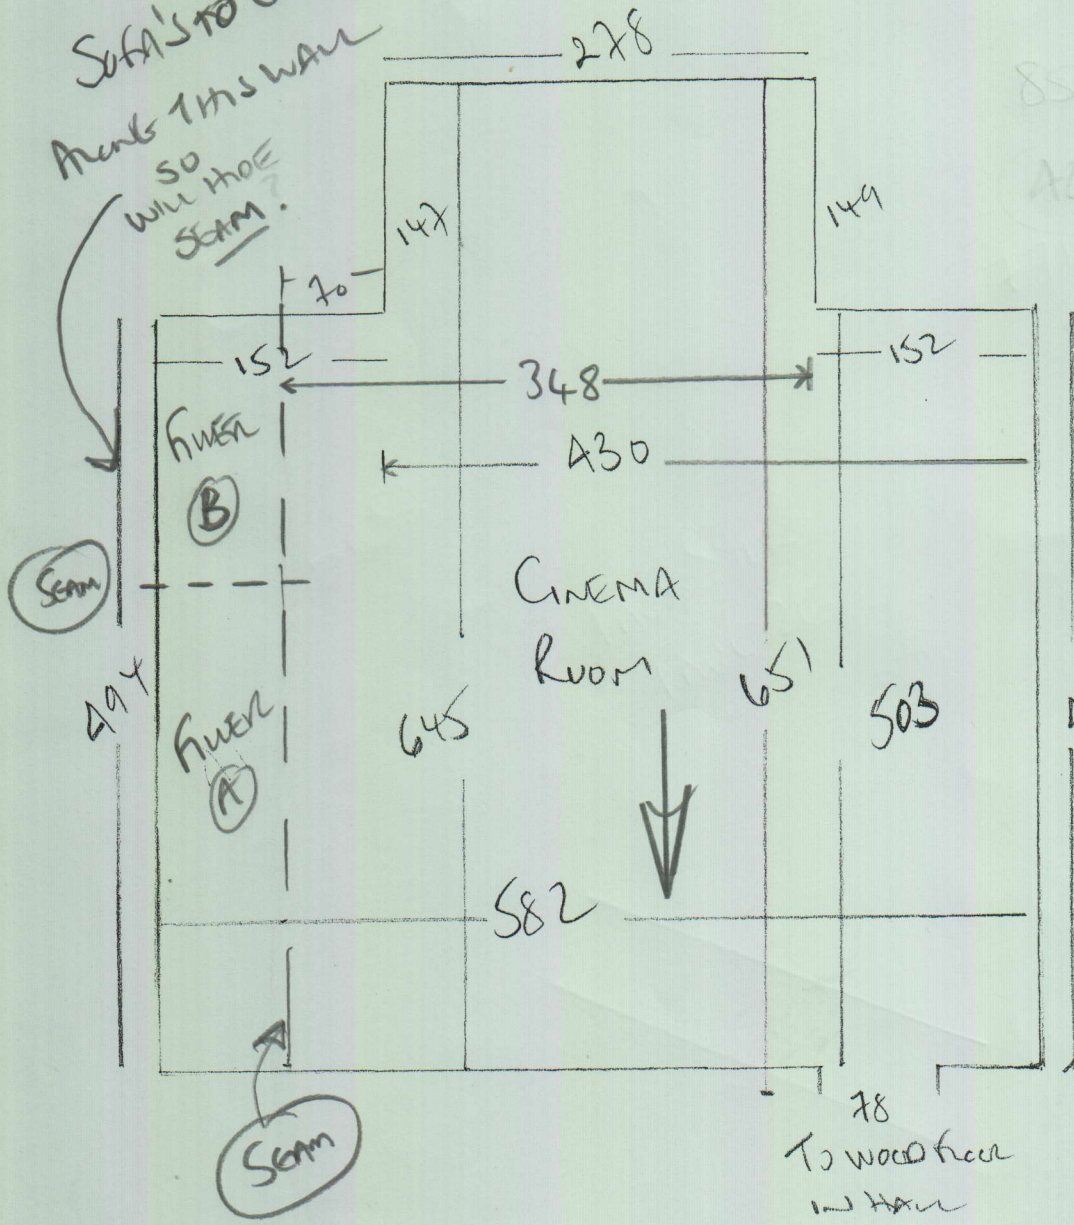 SOFA'S TO
ALONG THIS WALL
SO
WILL HIDE
SEAM?
278
147
149
70
152
152
348
430
FILLER
B
SEAM
CINEMA
ROOM
494
FILLER
A
645
651
503
582
SEAM
78
TO WOOD FLOOR
IN HALL